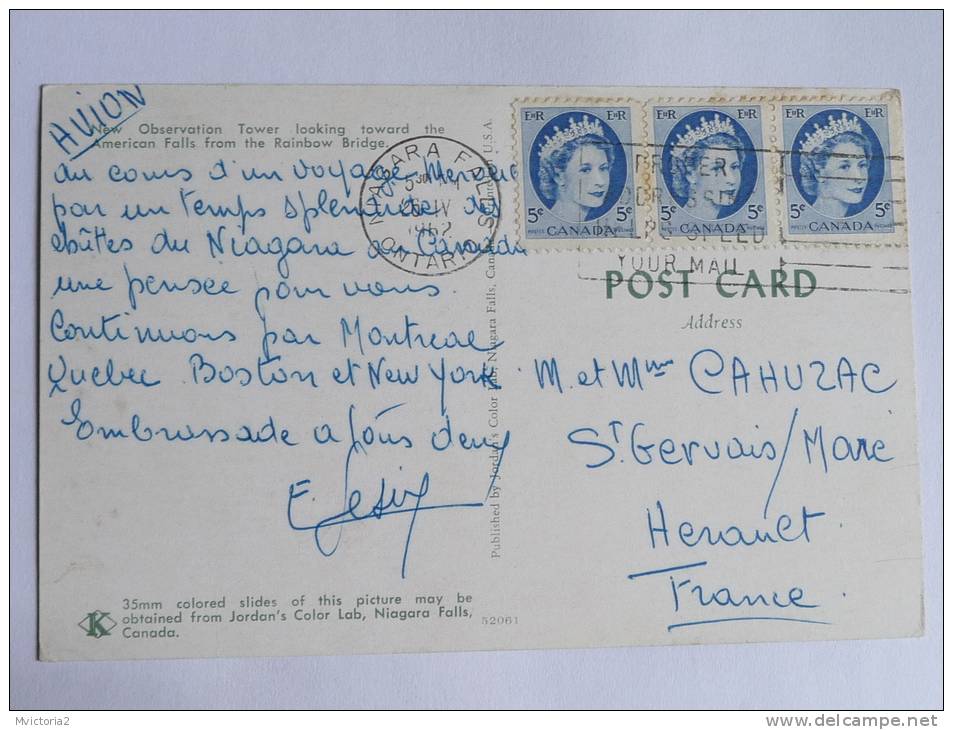 AVION
New Observation Tower looking toward the
American Falls from the Rainbow Bridge.
au cours d'un voyage
par un temps splendide des
chûtes du Niagara au Canada
une pensée pour vous.
Continuons par Montreal
Quebec Boston et New York
Embrassade a tous deux
35mm colored slides of this picture may be
obtained from Jordan's Color Lab, Niagara Falls,
Canada.
K
52061
Published by Jordan's Color Lab, Niagara Falls, Canada
U.S.A.
NIAGARA FALLS
IV
1962
ONTARIO
EIIR
5¢ 5¢
CANADA
EIIR
5¢ 5¢
CANADA
EIIR
5¢ 5¢
CANADA
PROPER
ADDRESSING
HELPS SPEED
YOUR MAIL
POST CARD
Address
M. et Mme CAHUZAC
St Gervais/Mare
Herault.
France.
Mvictoria2
www.delcampe.net